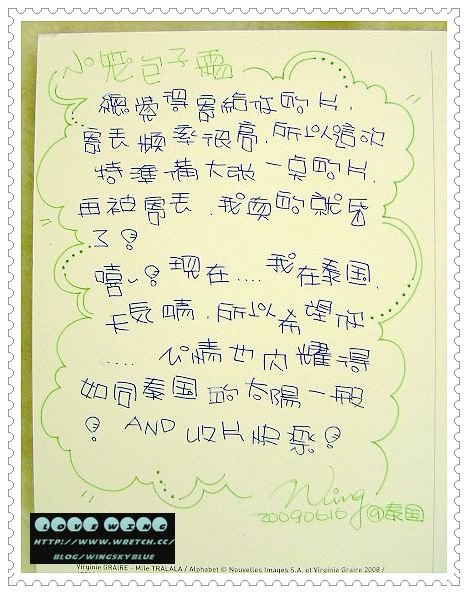 小籠包子霜
總覺得寄給你的片，
寄丟頻率很高，所以這次
特準備大張一点的片，
再被寄丟，我真的就昏
了！
嘻~！現在....我在泰国
天気晴，所以希望你
.....心情也閃耀得
如同泰国的太陽一般
！AND 收片快樂！
Wing
20090616 @泰国
LOVE WING
HTTP://WWW.WRETCH.CC/
BLOG/WINGSKYBLUE
Virginie GRAIRE - Mlle TRALALA / Alphabet © Nouvelles Images S.A. et Virginie Graire 2008 /